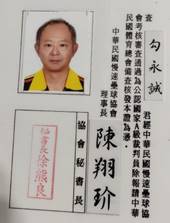 查勾永誠君經中華民國慢速壘球協會
會考核審查通過為公認國家A級裁判員除報請中華
民國體育總會備查核發本證為憑。
中華民國慢速壘球協會
理事長 陳翔玠
協會秘書長
秘書長徐熊良